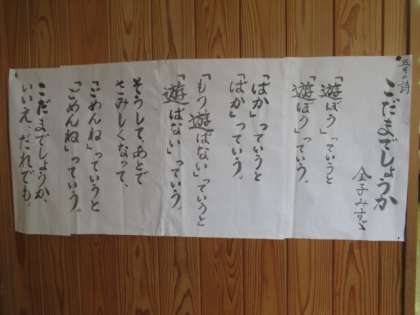 五月の詩
こだまでしょうか
金子みすゞ
「遊ぼう」っていうと
「遊ぼう」っていう。
「ばか」っていうと
「ばか」っていう。
「もう遊ばない」っていうと
「遊ばない」っていう。
そうして、あとで
さみしくなって、
「ごめんね」っていうと
「ごめんね」っていう。
こだまでしょうか、
いいえ、だれでも